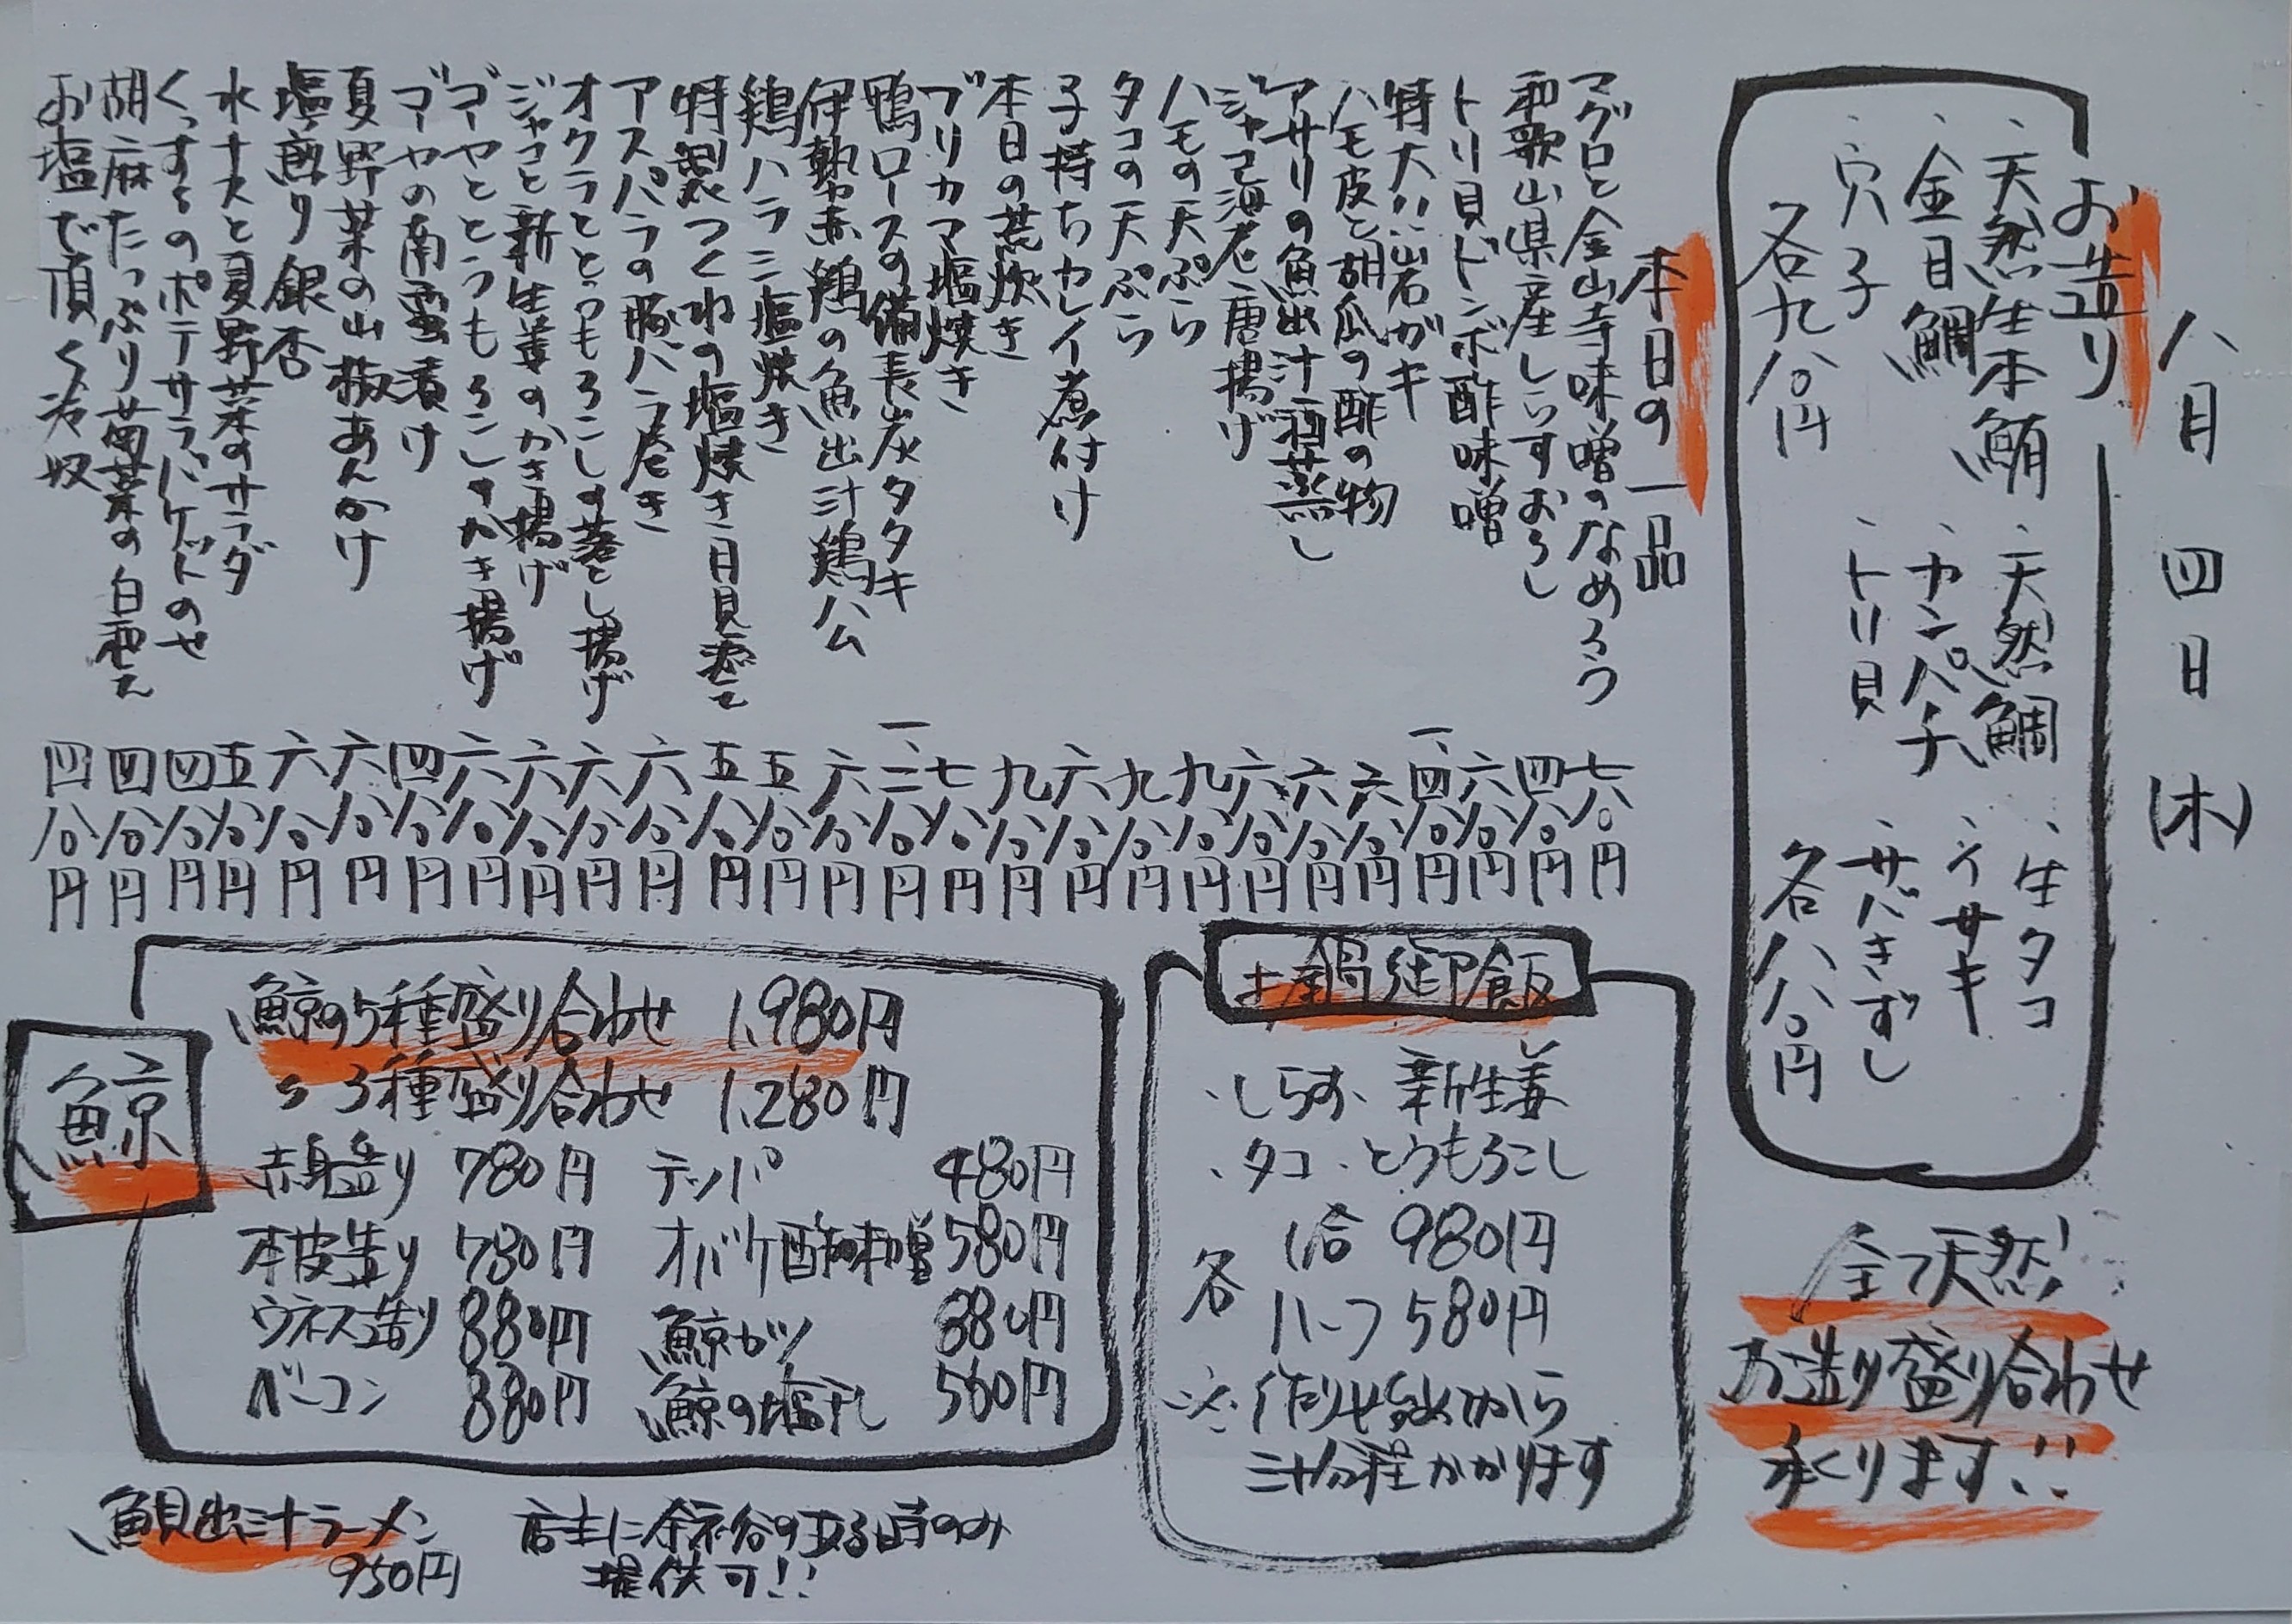 八月四日(木)
お造り
・天然生本鮪
・天然鯛
・生タコ
・金目鯛
・カンパチ
・イサキ
・穴子
・トリ貝
・サバきずし
各九八〇円
各八八〇円
全て天然!
お造り盛り合わせ
承ります!!
本日の一品
マグロと金山寺味噌のなめろう 七八〇円
和歌山県産しらすおろし 四八〇円
トリ貝ドンボ酢味噌 六八〇円
特大!!岩ガキ 一、四八〇円
ハモ皮と胡瓜の酢の物 六八〇円
アサリの魚出汁酒蒸し 六八〇円
ジャコ海老唐揚げ 六八〇円
ハモの天ぷら 九八〇円
タコの天ぷら 九八〇円
子持ちカレイ煮付け 六八〇円
本日の荒炊き 九八〇円
ブリカマ塩焼き 七八〇円
鴨ロースの備長炭タタキ 一、二八〇円
伊勢赤鶏の魚出汁鶏ハム 六八〇円
鶏ハラミ塩焼き 五八〇円
特製つくねの塩焼き月見添て 五八〇円
アスパラの豚バラ巻き 六八〇円
オクラととうもろこしの落とし揚げ 六八〇円
ジャコと新生姜のかき揚げ 六八〇円
ゴーヤととうもろこしのかき揚げ 六八〇円
ゴーヤの南蛮漬け 四八〇円
夏野菜の山椒あんかけ 六八〇円
塩煎り銀杏 六八〇円
水ナスと夏野菜のサラダ 五八〇円
くっするのポテサラバケットのせ 四八〇円
胡麻たっぷり菊菜の白和え 四八〇円
お塩で頂く冷奴 四八〇円
土鍋御飯
・しらす、新生姜
・タコ、とうもろこし
各 1合 980円
ハーフ 580円
※作り始めから
三十分程かかります
鯨
鯨の5種盛り合わせ 1,980円
〃 3種盛り合わせ 1,280円
赤身造り 780円 テッパ 480円
本皮造り 780円 オバケ酢味噌 580円
ウネス造り 880円 鯨カツ 880円
ベーコン 880円 鯨の塩干し 560円
鯛出汁ラーメン
950円
店主に余裕の有る時のみ
提供可!!